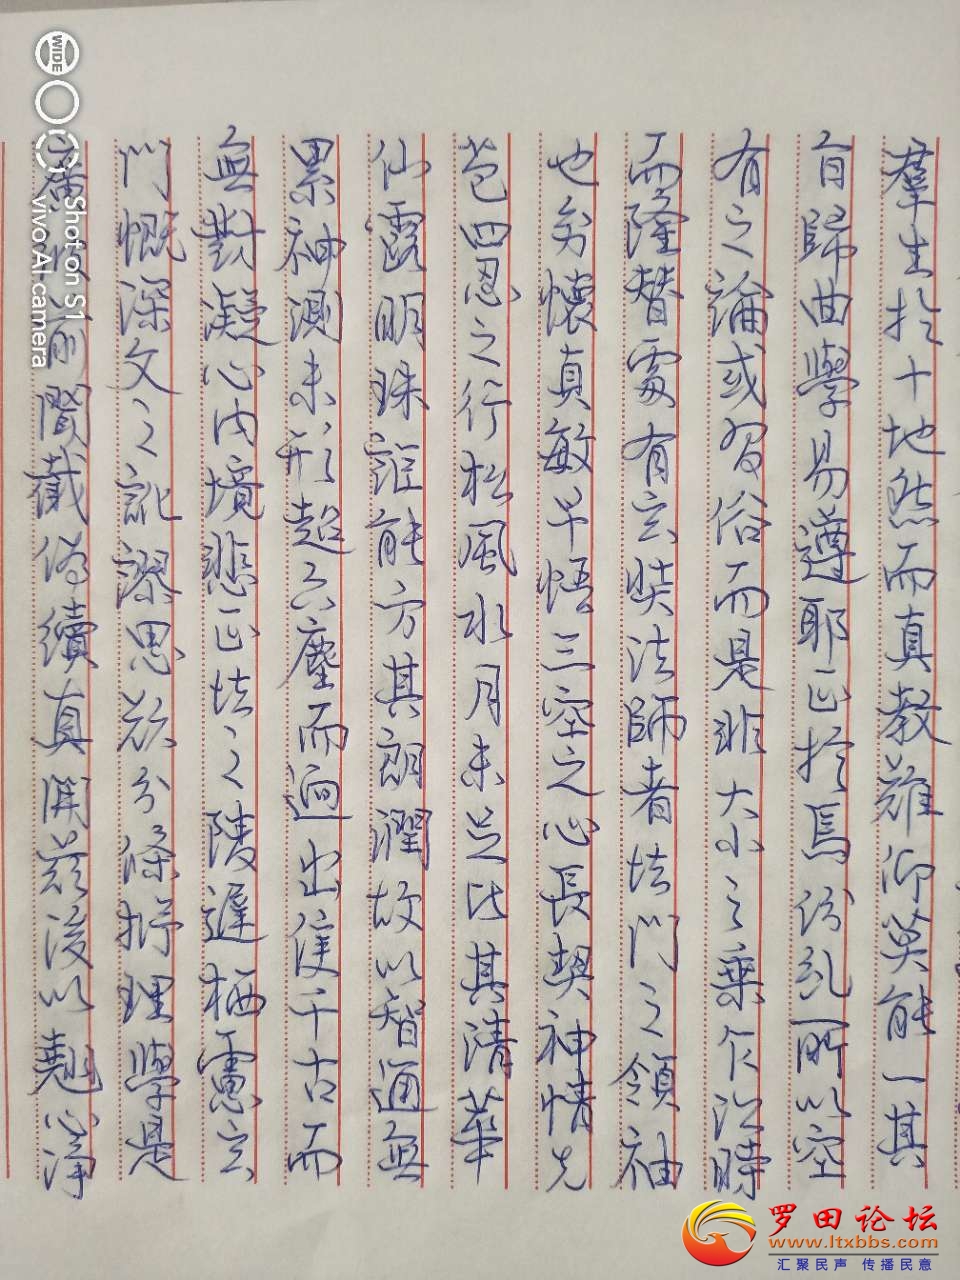 羣生於十地然而真教難仰莫能一其
旨歸曲學易遵耶正於焉紛乱所以空
有之論或習俗而是非大小之乘乍沿時
而隆替爰有玄奘法師者法門之領袖
也幼懷真敏早悟三空之心長契神情先
苞四忍之行松風水月未足比其清華
仙露明珠詎能方其朗潤故以智通無
累神測未形超六塵而迥出隻千古而
無對凝心內境悲正法之陵遲栖慮玄
門慨深文之訛謬思欲分條析理學是
前聞截偽續真開茲後以翹心淨
Shot on S1
vivo AI camera
WIDE
罗田论坛
www.ltxbbs.com
汇聚民声 传播民意